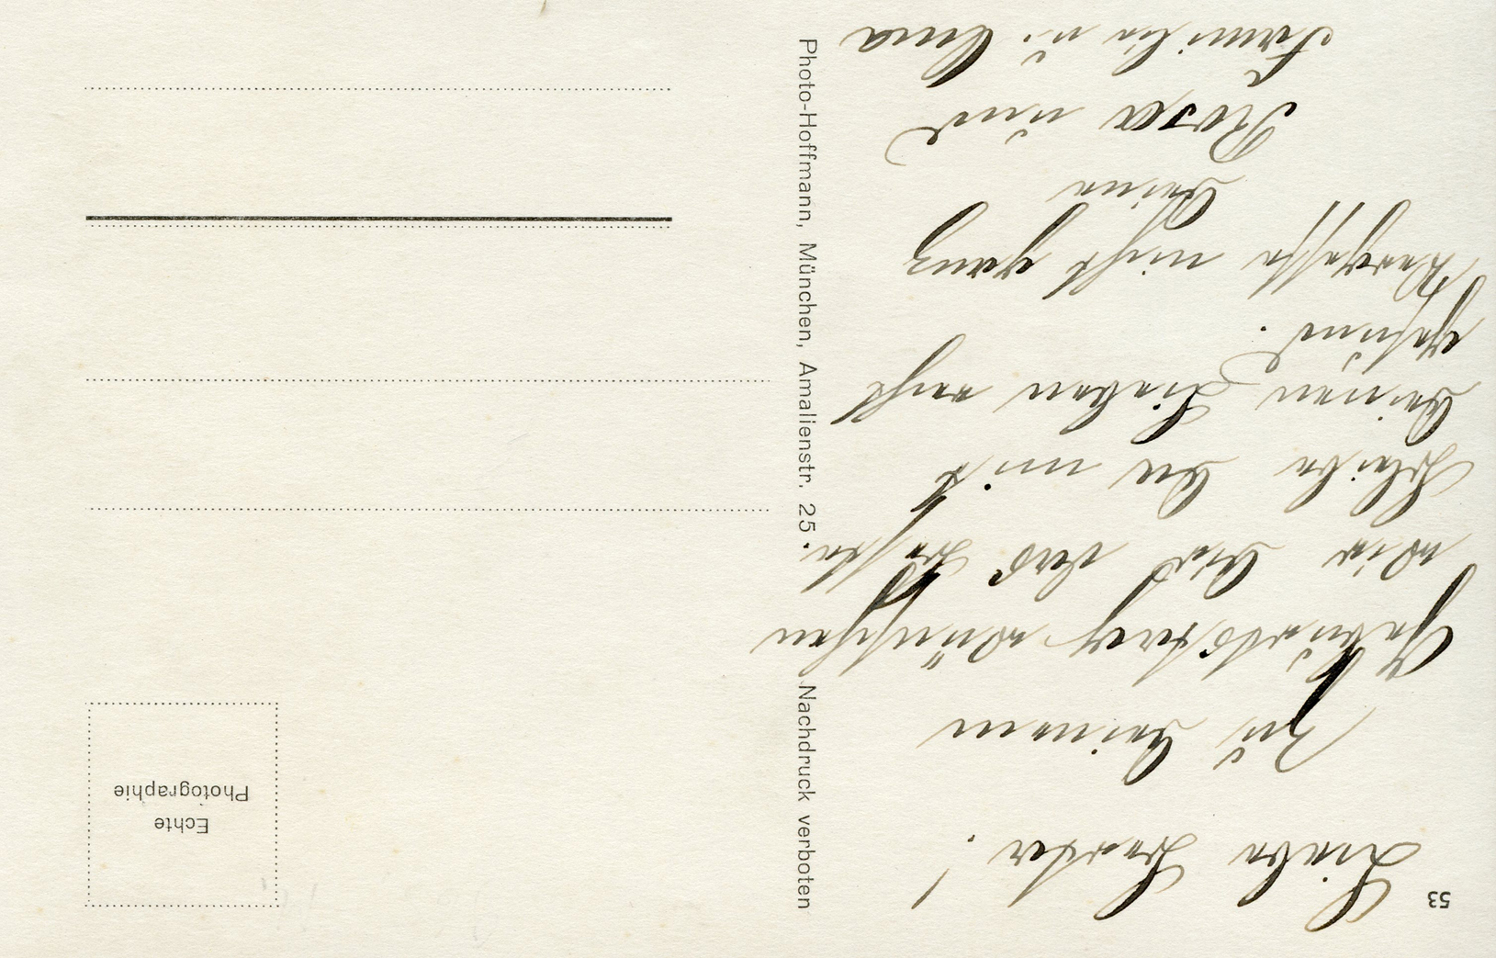 53
Liebe Berta!
Zu Deinem
Geburtstag wünschen
wir Dir das Beste.
Bleibe Du mit
Deinen Lieben recht
gesund.
Vergesse nicht ganz
Deine
Rosa und
Familie u.
Photo-Hoffmann, München, Amalienstr. 25. Nachdruck verboten
Echte
Photographie